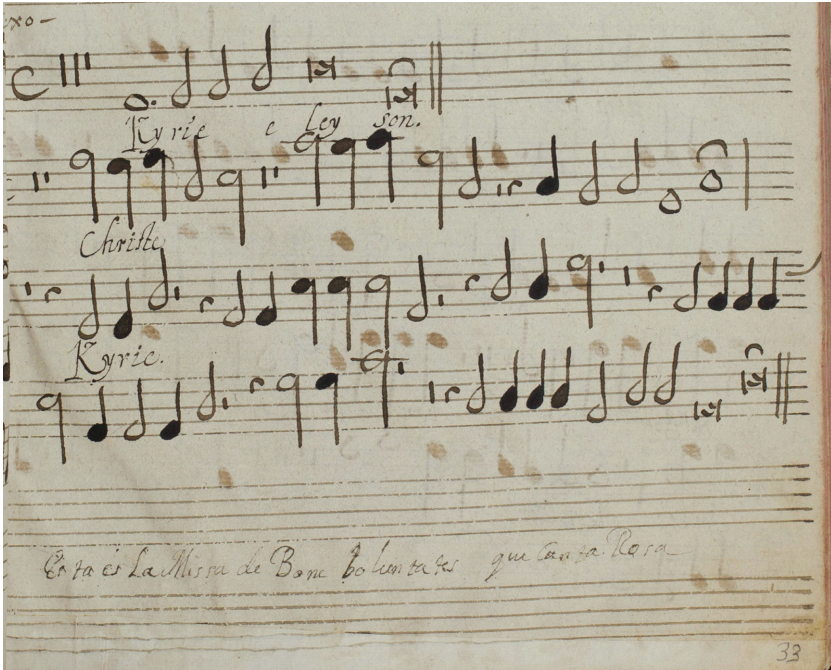 exo-
Kyrie e ley son.
Christe
Kyrie.
Esta es La Missa de Bone boluntates que Canta Rosa
33